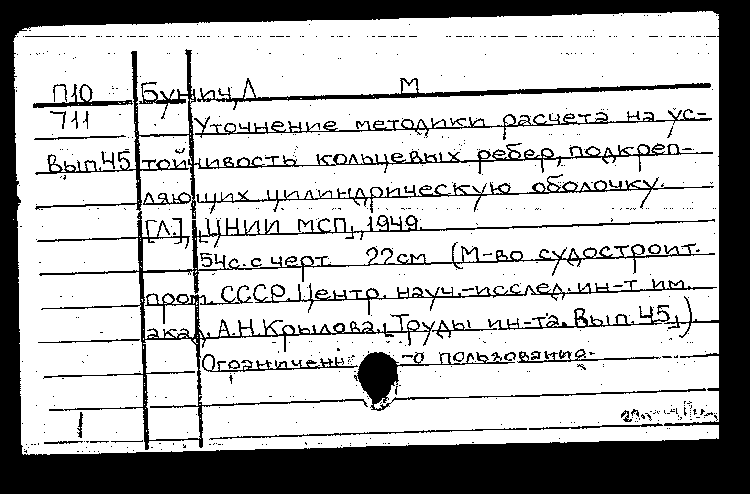 П10 Бунич, Л М
711 Уточнение методики расчета на ус-
Вып.45 тойчивость кольцевых ребер, подкреп-
ляющих цилиндрическую оболочку.
[Л.], „ЦНИИ МСП", 1949.
54с. с черт. 22см (М-во судостроит.
пром. СССР. Центр. науч.-исслед. ин-т им.
акад. А.Н.Крылова. [Труды ин-та. Вып. 45])
Ограниченн -о пользования.
1